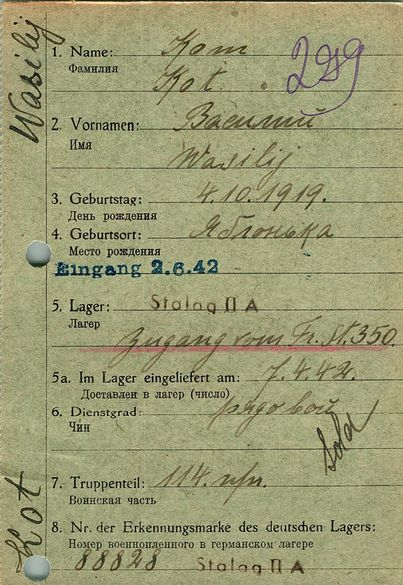 Wasilij
Kot
1. Name: Кот
Фамилия
Kot
299
2. Vornamen: Василий
Имя
Wasilij
3. Geburtstag: 4.10.1919.
День рождения
4. Geburtsort: Яблонька
Место рождения
Eingang 2.6.42
5. Lager: Stalag II A
Лагерь
Zugang vom Fr. St. 350.
5a. Im Lager eingeliefert am: 7.4.42.
Доставлен в лагерь (число)
6. Dienstgrad: рядовой
Чин
Sold
7. Truppenteil: 114.
Воинская часть
8. Nr. der Erkennungsmarke des deutschen Lagers:
Номер военнопленного в германском лагере
88828 Stalag II A